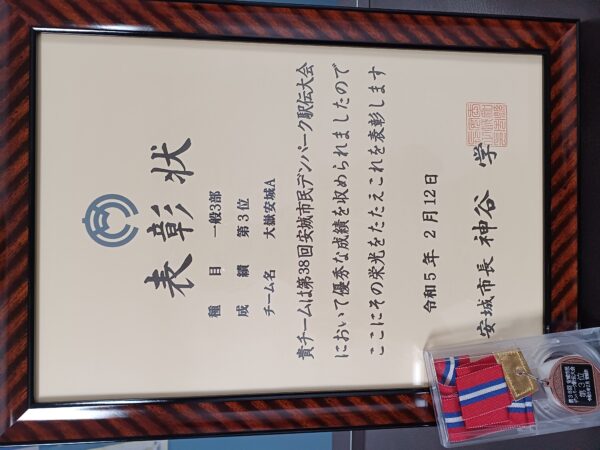 表彰状
種目 一般3部
成績 第3位
チーム名 大嶽安城A
貴チームは第38回安城市民デンパーク駅伝大会
において優秀な成績を収められましたので
ここにその栄光をたたえこれを表彰します
令和5年2月12日
安城市長 神谷 学
第38回 安城市民
デンパーク駅伝大会
第3位